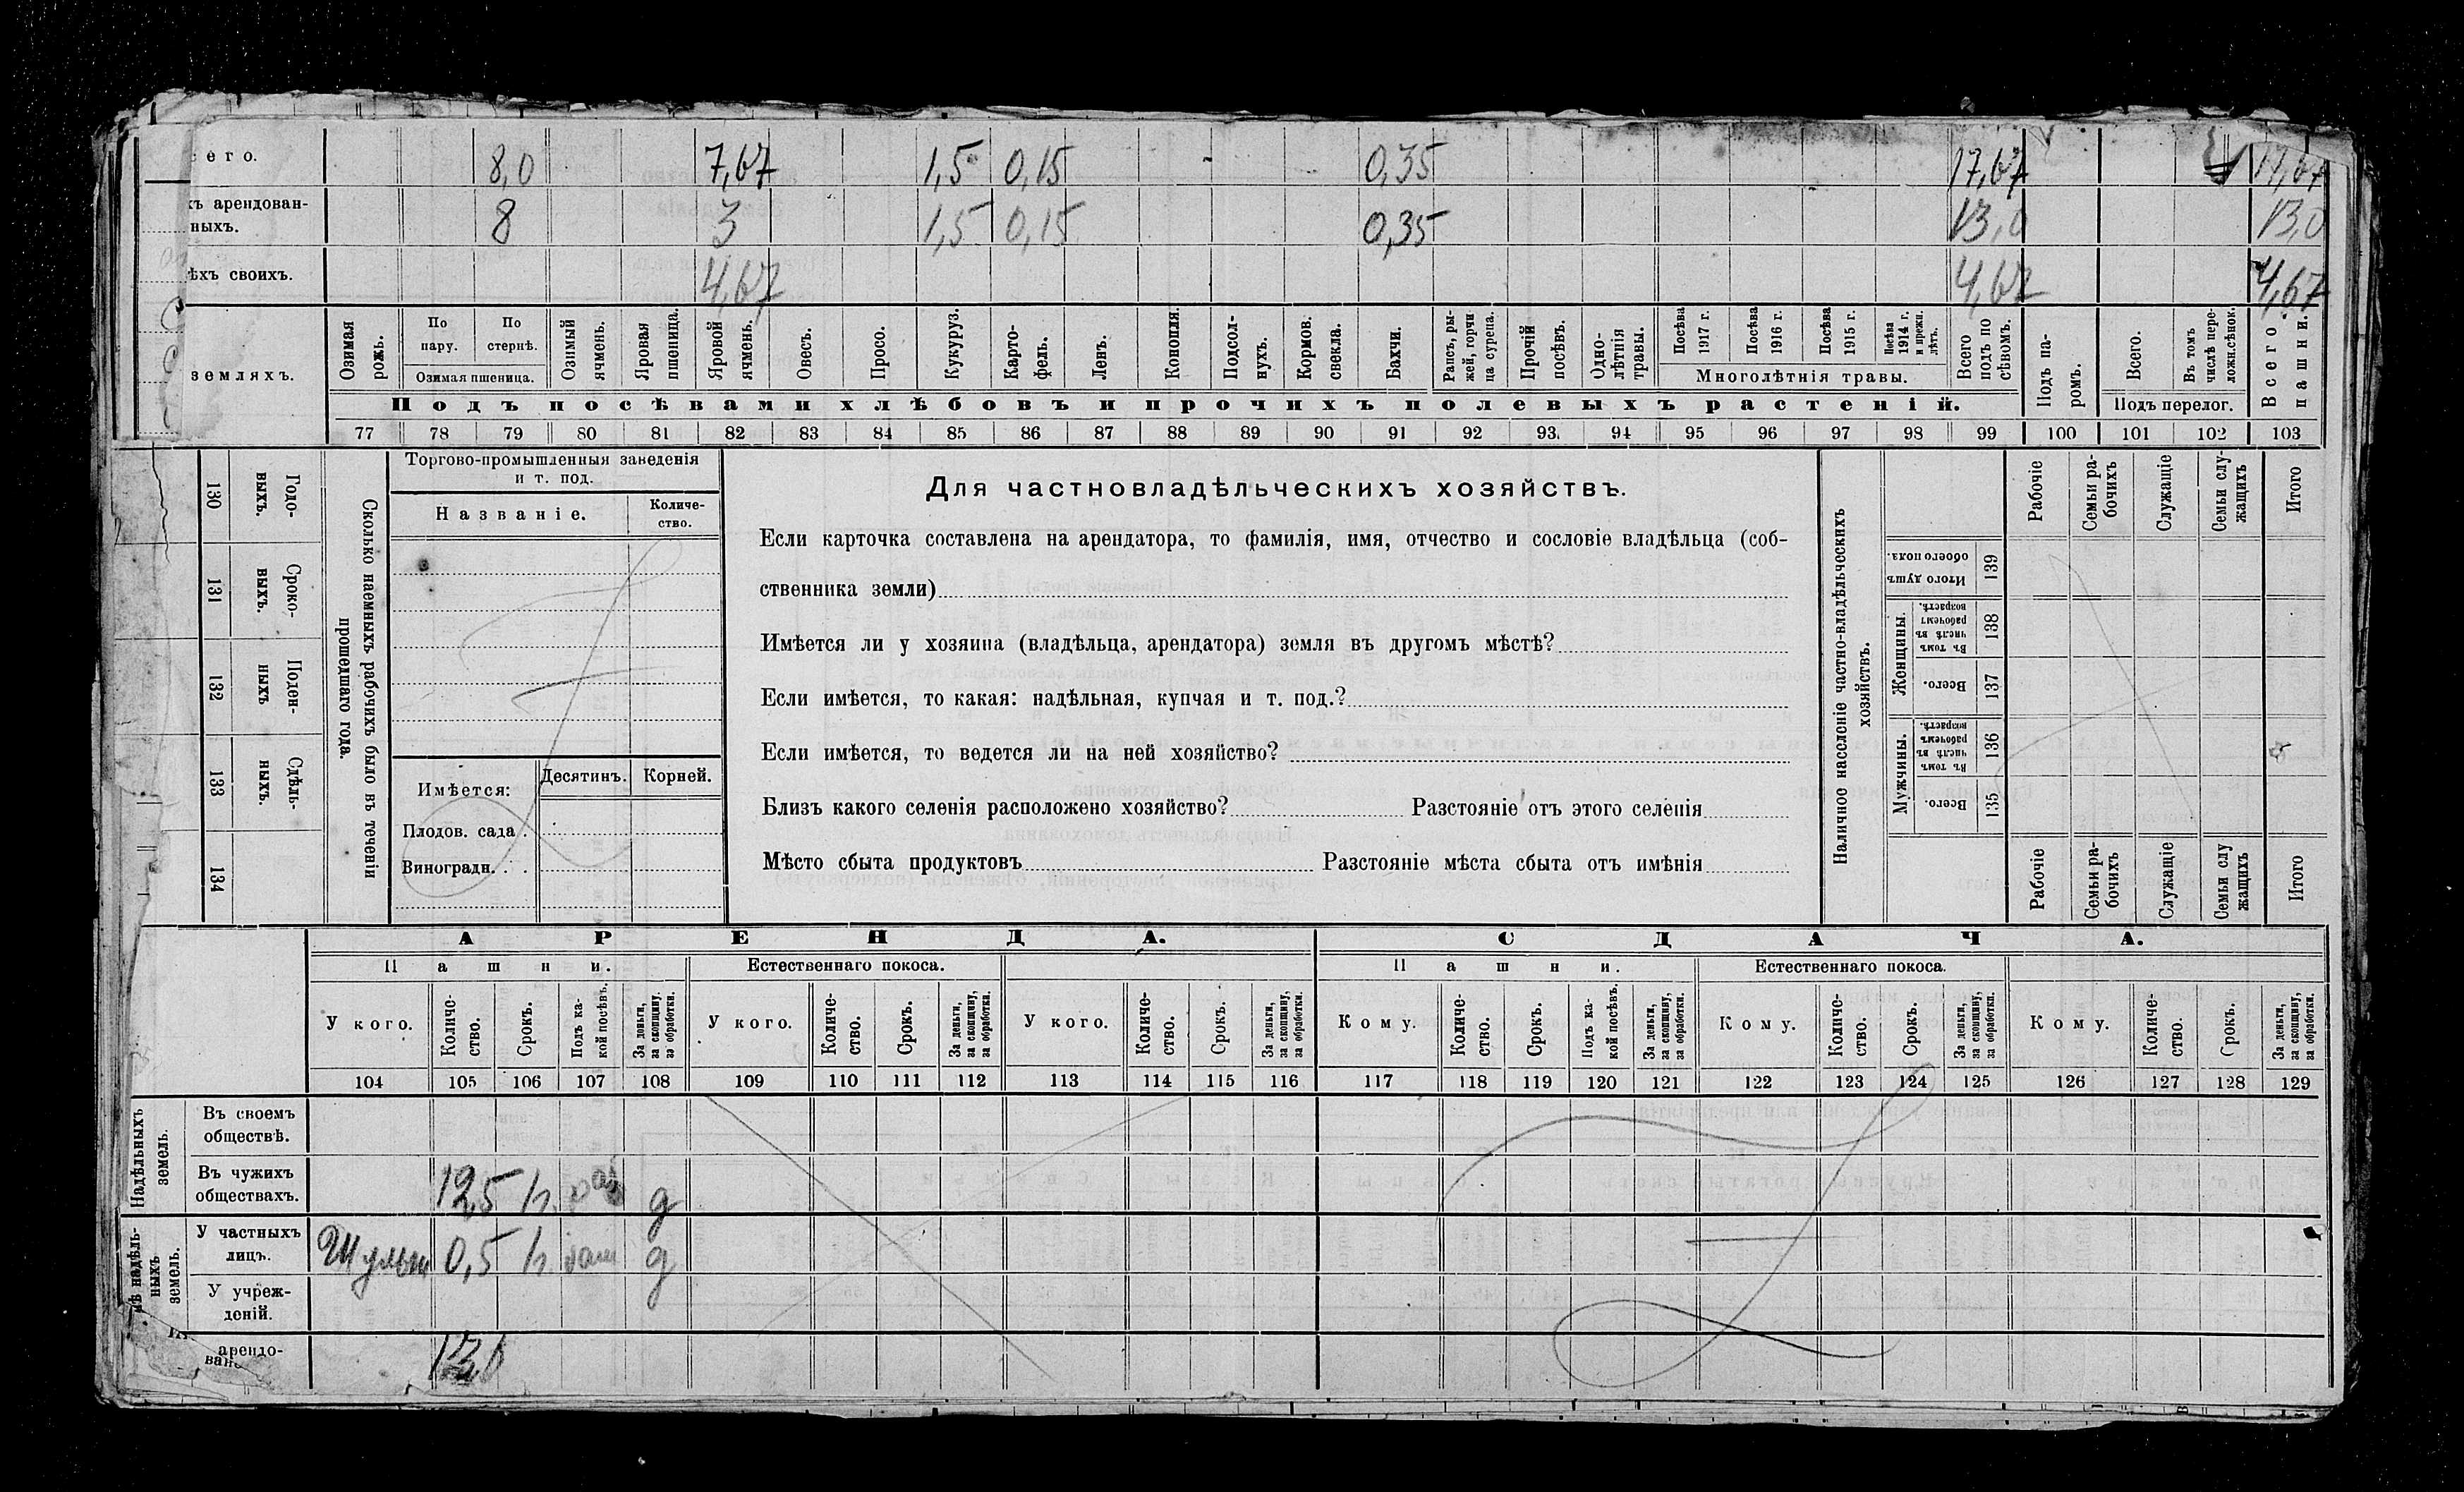 его. 8,0 7,67 1,5 0,15 0,35 17,67 17,67
хъ арендован-
ныхъ. 8 3 1,5 0,15 0,35 13,0 13,0
ѣхъ своихъ. 4,67 4,67 4,67
земляхъ.
Озимая рожь.
По пару.
По стернѣ.
Озимая пшеница.
Озимый ячмень.
Яровая пшеница.
Яровой ячмень.
Овесъ.
Просо.
Кукуруз.
Карто-
фель.
Ленъ.
Конопля.
Подсол-
нухъ.
Кормов.
свекла.
Бахчи.
Рапсъ, ры-
жей, горчи
ца сурепа.
Прочій
посѣвъ.
Одно-
лѣтнія
травы.
Посѣва
1917 г.
Посѣва
1916 г.
Посѣва
1915 г.
Посѣва
1914 г.
и прежн.
лѣтъ.
Многолѣтнія травы.
Всего
подъ по
сѣвомъ.
Подъ па-
ромъ.
Всего.
Въ томъ
числѣ пере-
ложн.сѣнок.
Подъ перелог.
Всего
пашни.
Подъ посѣвами хлѣбовъ и прочихъ полевыхъ растеній.
77 78 79 80 81 82 83 84 85 86 87 88 89 90 91 92 93. 94 95 96 97 98 99 100 101 102 103
130 Годо-
выхъ.
131 Сроко-
выхъ.
132 Поден-
ныхъ
133 Сдѣль-
ныхъ.
134
Сколько наемныхъ рабочихъ было въ теченіи
прошедшаго года.
Торгово-промышленныя заведенія
и т. под.
Названіе.
Количе-
ство.
Имѣется:
Десятинъ. Корней.
Плодов. сада .
Виноградн. . .
Для частновладѣльческихъ хозяйствъ.
Если карточка составлена на арендатора, то фамилія, имя, отчество и сословіе владѣльца (соб-
ственника земли)
Имѣется ли у хозяина (владѣльца, арендатора) земля въ другомъ мѣстѣ?
Если имѣется, то какая: надѣльная, купчая и т. под.?
Если имѣется, то ведется ли на ней хозяйство?
Близъ какого селенія расположено хозяйство? Разстояніе отъ этого селенія
Мѣсто сбыта продуктовъ Разстояніе мѣста сбыта отъ имѣнія
Наличное населеніе частно-владѣльческихъ
хозяйствъ.
Рабочіе
Семьи ра-
бочихъ
Служащіе
Семьи слу-
жащихъ
Итого
Итого душъ
обоего пола.
139
Женщины.
Въ томъ
числѣ въ
рабочемъ
возрастѣ.
138
Всего.
137
Мужчины.
Въ томъ
числѣ въ
рабочемъ
возрастѣ.
136
Всего.
135
Рабочіе
Семьи ра-
бочихъ
Служащіе
Семьи слу
жащихъ
Итого
АРЕНДА. СДАЧА.
Пашни. Естественнаго покоса. Пашни. Естественнаго покоса.
У кого.
Количе-
ство.
Срокъ.
Подъ ка-
кой посѣвъ.
За деньги,
за скопщину,
за обработки.
У кого.
Количе-
ство.
Срокъ.
За деньги,
за скопщину,
за обработки.
У кого.
Количе-
ство.
Срокъ.
За деньги,
за скопщину,
за обработки.
Кому.
Количе-
ство.
Срокъ.
Подъ ка-
кой посѣвъ.
За деньги,
за скопщину,
за обработки.
Кому.
Количе-
ство.
Срокъ.
За деньги,
за скопщину,
за обработки.
Кому.
Количе-
ство.
Срокъ.
За деньги,
за скопщину,
за обработки.
104 105 106 107 108 109 110 111 112 113 114 115 116 117 118 119 120 121 122 123 124 125 126 127 128 129
Надѣльныхъ
земель.
Въ своемъ
обществѣ.
Въ чужихъ
обществахъ. 12,5 д
ѣ надѣль-
ныхъ
земель.
У частныхъ
лицъ. 0,5 д
У учреж-
деній.
арендо-